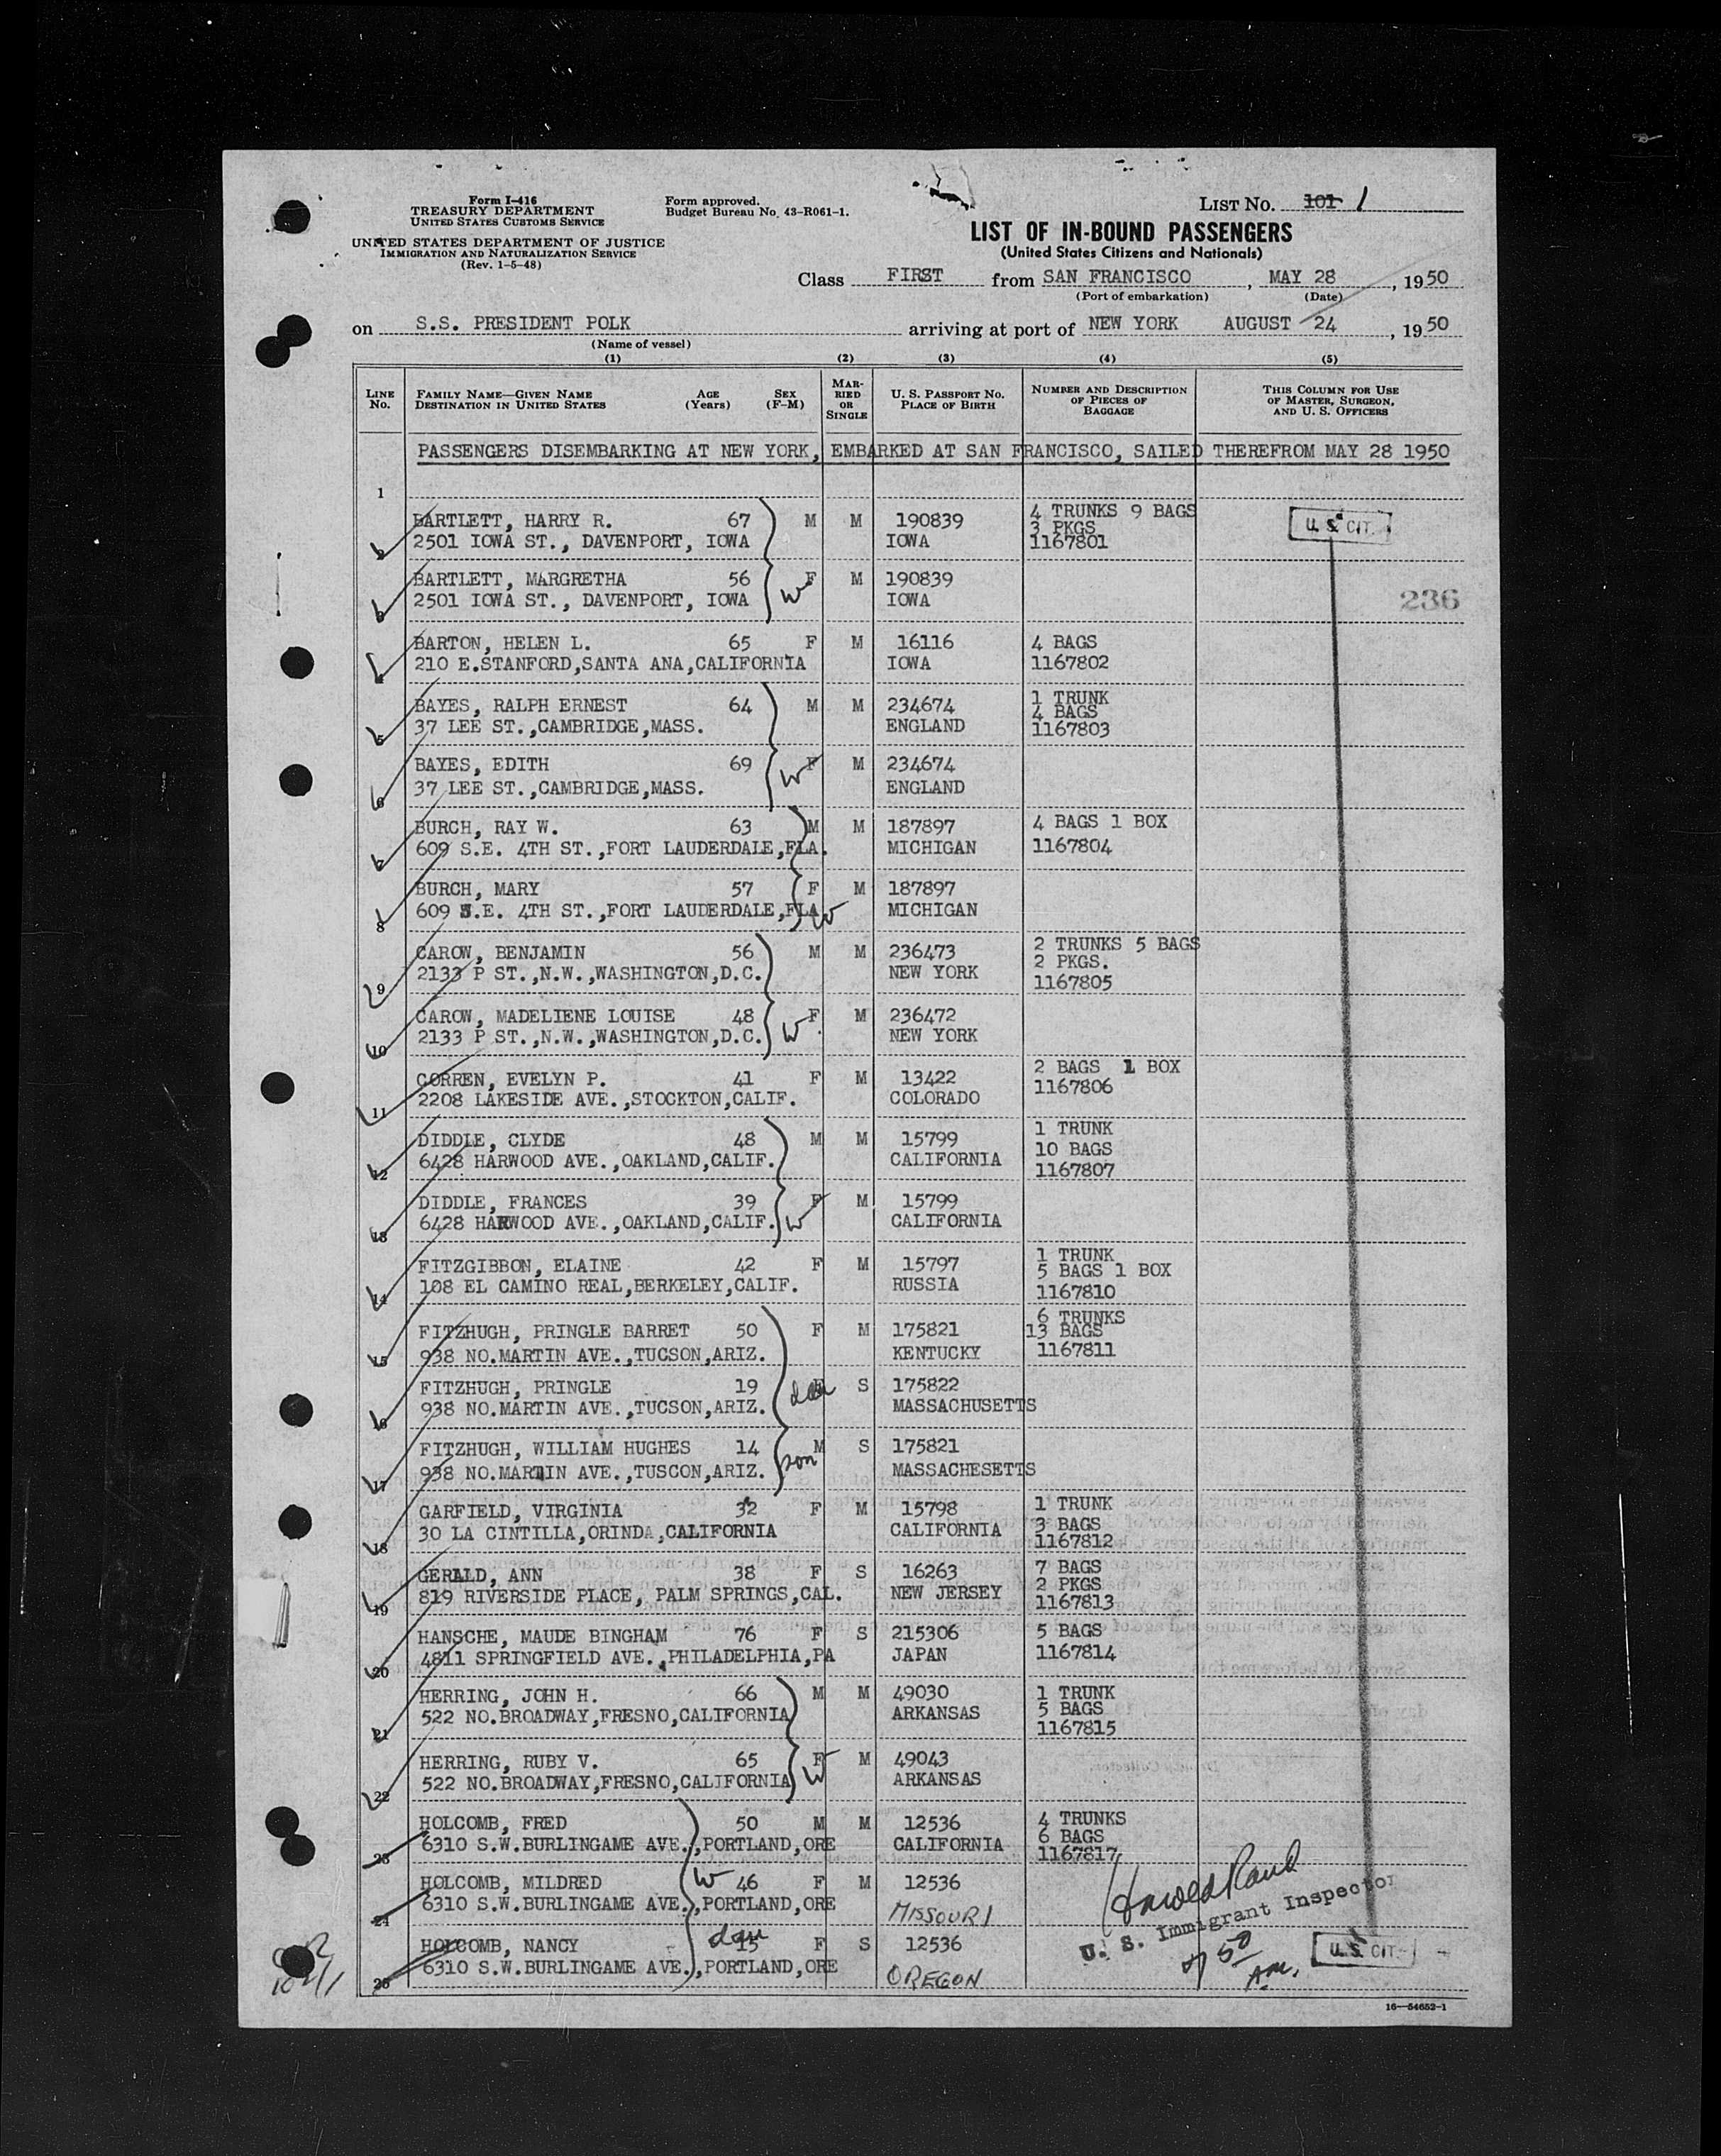 Form I-416
TREASURY DEPARTMENT
UNITED STATES CUSTOMS SERVICE
UNITED STATES DEPARTMENT OF JUSTICE
IMMIGRATION AND NATURALIZATION SERVICE
(Rev. 1-5-48)
Form approved.
Budget Bureau No. 43-R061-1.
LIST No. 101 1
LIST OF IN-BOUND PASSENGERS
(United States Citizens and Nationals)
Class FIRST from SAN FRANCISCO, MAY 28, 1950
(Port of embarkation) (Date)
on S.S. PRESIDENT POLK arriving at port of NEW YORK AUGUST 24, 1950
(Name of vessel)
(1) (2) (3) (4) (5)
LINE No. FAMILY NAME—GIVEN NAME DESTINATION IN UNITED STATES AGE (Years) SEX (F-M) MARRIED OR SINGLE U. S. PASSPORT No. PLACE OF BIRTH NUMBER AND DESCRIPTION OF PIECES OF BAGGAGE THIS COLUMN FOR USE OF MASTER, SURGEON, AND U. S. OFFICERS
PASSENGERS DISEMBARKING AT NEW YORK, EMBARKED AT SAN FRANCISCO, SAILED THEREFROM MAY 28 1950
1
BARTLETT, HARRY R. 67 M M 190839 4 TRUNKS 9 BAGS
3 PKGS
2 2501 IOWA ST., DAVENPORT, IOWA IOWA 1167801
U. S. CIT.
BARTLETT, MARGRETHA 56 F M 190839
3 2501 IOWA ST., DAVENPORT, IOWA W IOWA
236
BARTON, HELEN L. 65 F M 16116 4 BAGS
4 210 E.STANFORD,SANTA ANA,CALIFORNIA IOWA 1167802
BAYES, RALPH ERNEST 64 M M 234674 1 TRUNK
4 BAGS
5 37 LEE ST.,CAMBRIDGE,MASS. ENGLAND 1167803
BAYES, EDITH 69 F M 234674
6 37 LEE ST.,CAMBRIDGE,MASS. W ENGLAND
BURCH, RAY W. 63 M M 187897 4 BAGS 1 BOX
7 609 S.E. 4TH ST.,FORT LAUDERDALE,FLA. MICHIGAN 1167804
BURCH, MARY 57 F M 187897
8 609 S.E. 4TH ST.,FORT LAUDERDALE,FLA W MICHIGAN
CAROW, BENJAMIN 56 M M 236473 2 TRUNKS 5 BAGS
2 PKGS.
9 2133 P ST.,N.W.,WASHINGTON,D.C. NEW YORK 1167805
CAROW, MADELIENE LOUISE 48 F M 236472
10 2133 P ST.,N.W.,WASHINGTON,D.C. W NEW YORK
CORREN, EVELYN P. 41 F M 13422 2 BAGS 1 BOX
11 2208 LAKESIDE AVE.,STOCKTON,CALIF. COLORADO 1167806
DIDDLE, CLYDE 48 M M 15799 1 TRUNK
10 BAGS
12 6428 HARWOOD AVE.,OAKLAND,CALIF. CALIFORNIA 1167807
DIDDLE, FRANCES 39 F M 15799
13 6428 HARWOOD AVE.,OAKLAND,CALIF. W CALIFORNIA
FITZGIBBON, ELAINE 42 F M 15797 1 TRUNK
5 BAGS 1 BOX
14 108 EL CAMINO REAL,BERKELEY,CALIF. RUSSIA 1167810
FITZHUGH, PRINGLE BARRET 50 F M 175821 6 TRUNKS
13 BAGS
15 938 NO.MARTIN AVE.,TUCSON,ARIZ. KENTUCKY 1167811
FITZHUGH, PRINGLE 19 dau S 175822
16 938 NO.MARTIN AVE.,TUCSON,ARIZ. MASSACHUSETTS
FITZHUGH, WILLIAM HUGHES 14 M S 175821
17 938 NO.MARTIN AVE.,TUSCON,ARIZ. son MASSACHESETTS
GARFIELD, VIRGINIA 32 F M 15798 1 TRUNK
3 BAGS
18 30 LA CINTILLA,ORINDA,CALIFORNIA CALIFORNIA 1167812
GERALD, ANN 38 F S 16263 7 BAGS
2 PKGS
19 819 RIVERSIDE PLACE, PALM SPRINGS,CAL. NEW JERSEY 1167813
HANSCHE, MAUDE BINGHAM 76 F S 215306 5 BAGS
20 4811 SPRINGFIELD AVE.,PHILADELPHIA,PA JAPAN 1167814
HERRING, JOHN H. 66 M M 49030 1 TRUNK
5 BAGS
21 522 NO.BROADWAY,FRESNO,CALIFORNIA ARKANSAS 1167815
HERRING, RUBY V. 65 F M 49043
22 522 NO.BROADWAY,FRESNO,CALIFORNIA W ARKANSAS
HOLCOMB, FRED 50 M M 12536 4 TRUNKS
6 BAGS
23 6310 S.W.BURLINGAME AVE.,PORTLAND,ORE CALIFORNIA 1167817
HOLCOMB, MILDRED W 46 F M 12536
24 6310 S.W.BURLINGAME AVE.,PORTLAND,ORE MISSOURI
HOLCOMB, NANCY dau 15 F S 12536
25 6310 S.W.BURLINGAME AVE.,PORTLAND,ORE OREGON
U. S. Immigrant Inspector
U. S. CIT.
16—54652-1